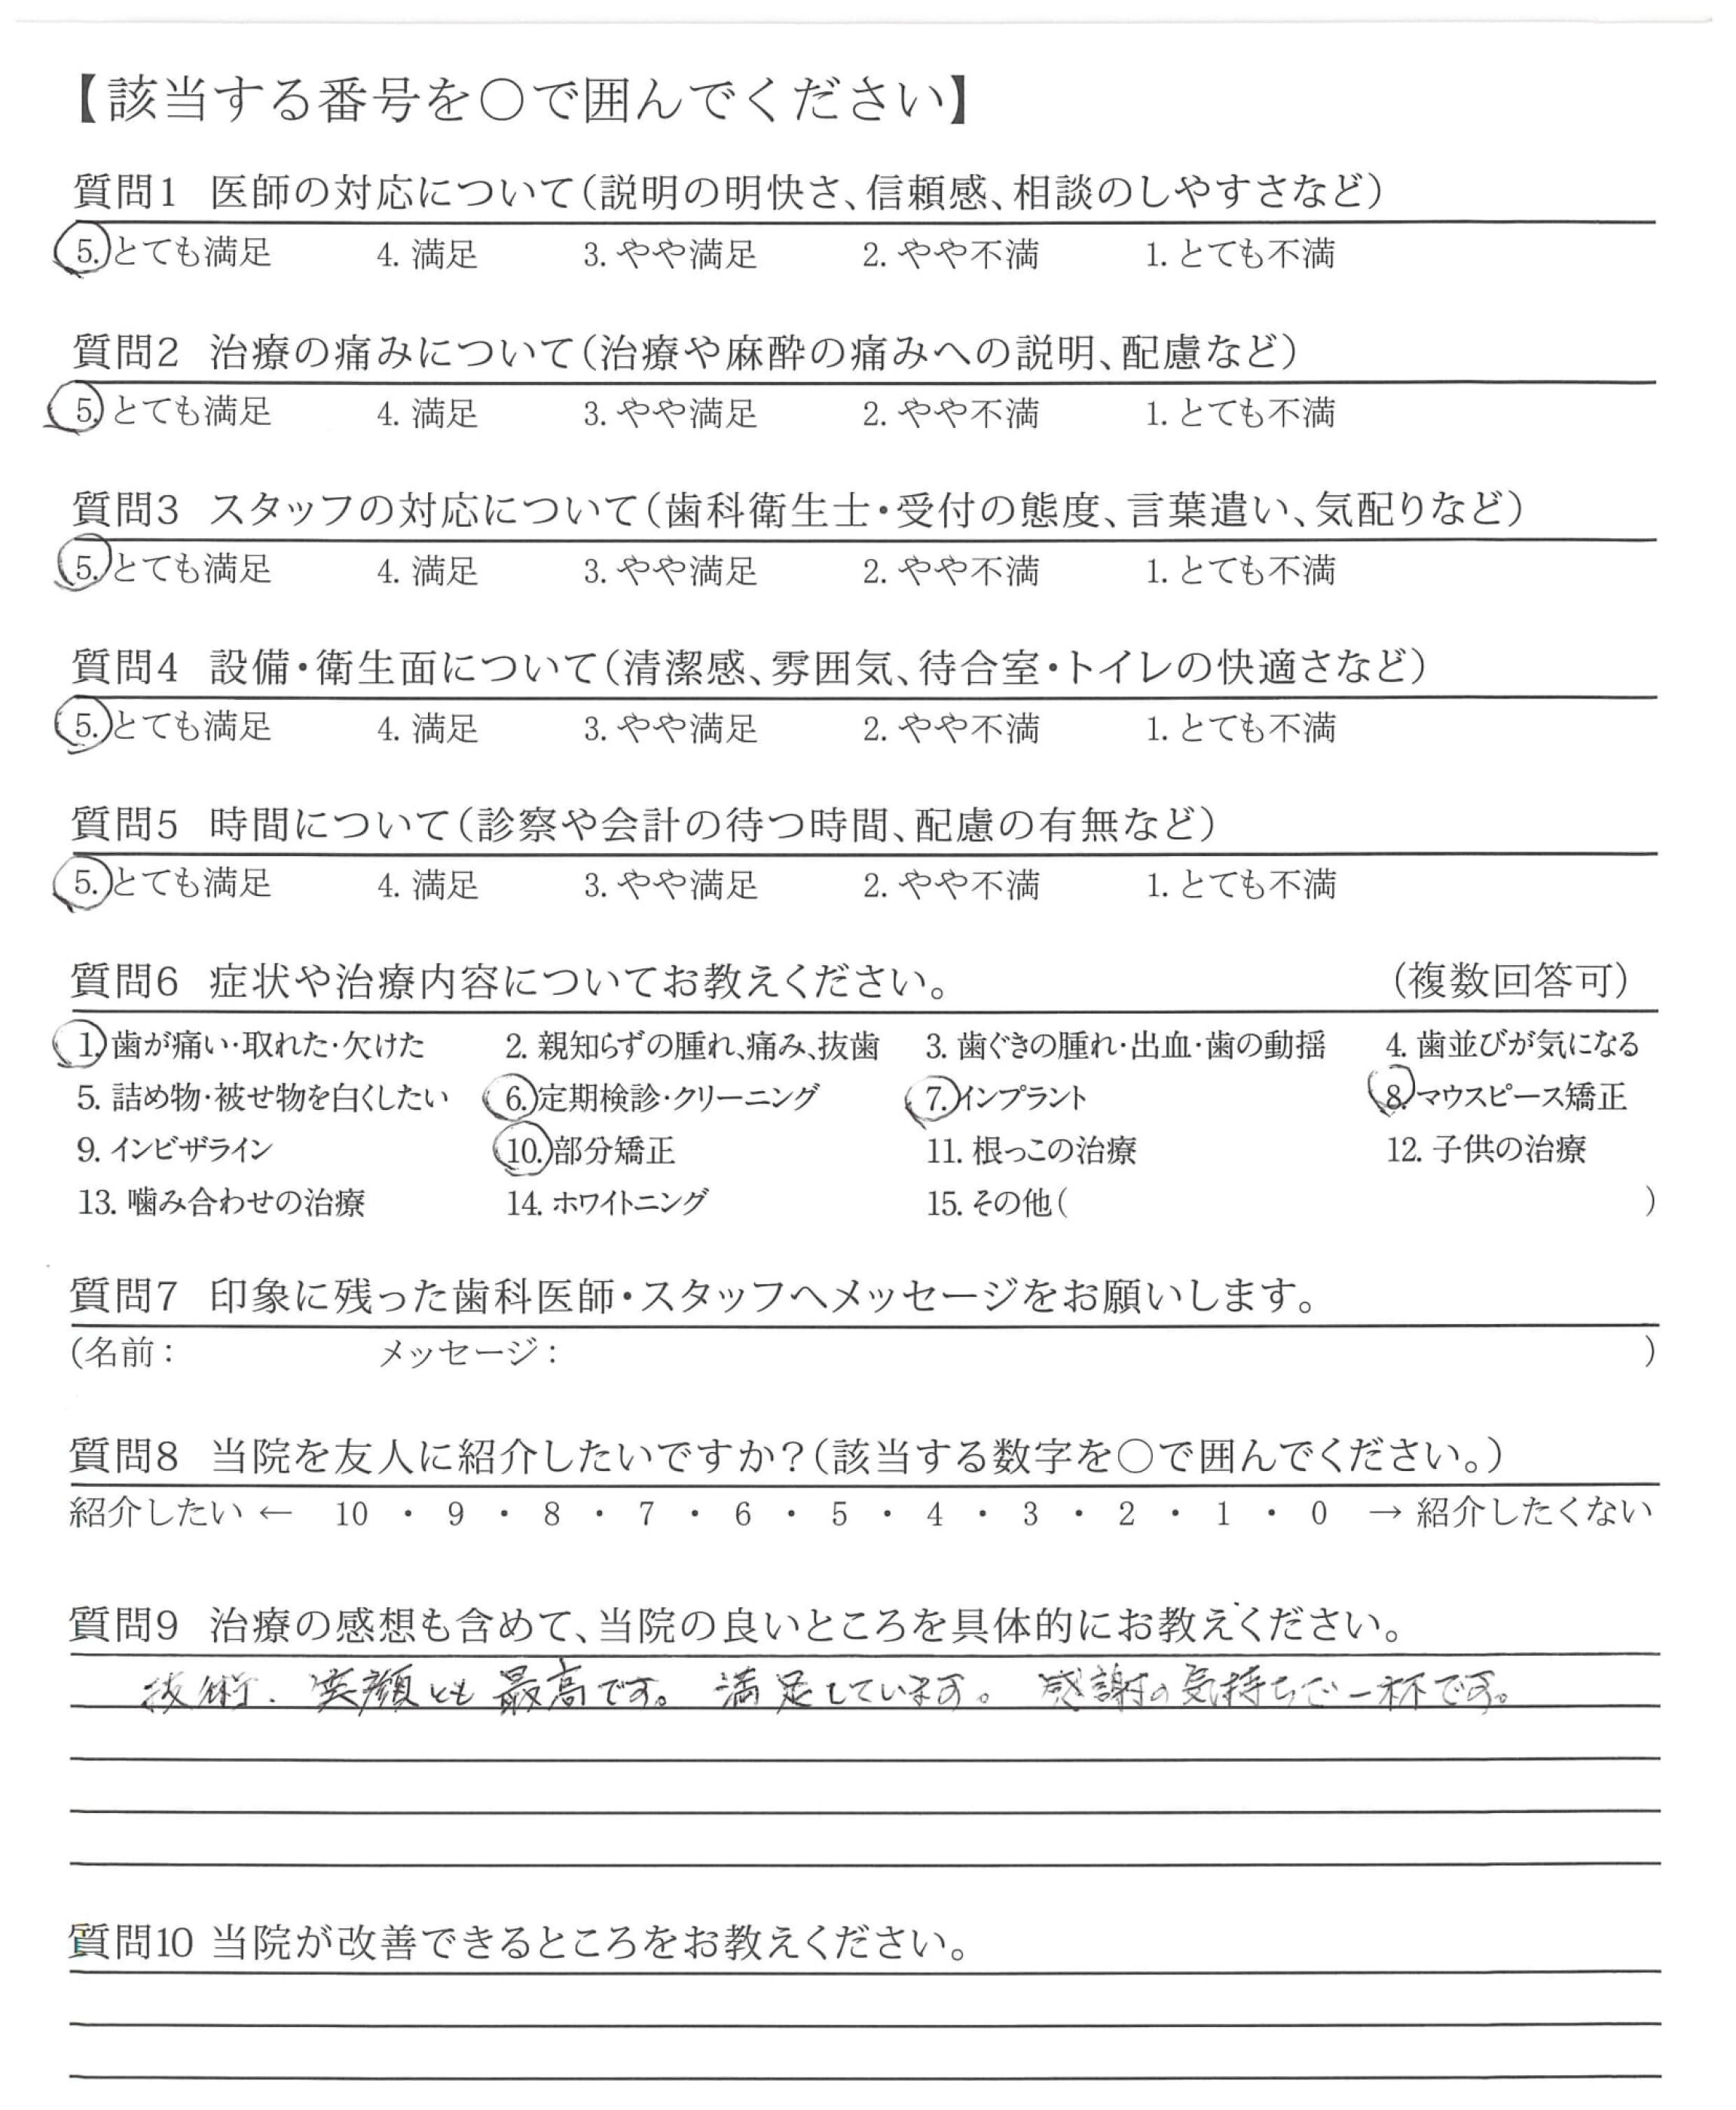 【該当する番号を○で囲んでください】
質問1 医師の対応について(説明の明快さ、信頼感、相談のしやすさなど)
5. とても満足 4. 満足 3. やや満足 2. やや不満 1. とても不満
質問2 治療の痛みについて(治療や麻酔の痛みへの説明、配慮など)
5. とても満足 4. 満足 3. やや満足 2. やや不満 1. とても不満
質問3 スタッフの対応について(歯科衛生士・受付の態度、言葉遣い、気配りなど)
5. とても満足 4. 満足 3. やや満足 2. やや不満 1. とても不満
質問4 設備・衛生面について(清潔感、雰囲気、待合室・トイレの快適さなど)
5. とても満足 4. 満足 3. やや満足 2. やや不満 1. とても不満
質問5 時間について(診察や会計の待つ時間、配慮の有無など)
5. とても満足 4. 満足 3. やや満足 2. やや不満 1. とても不満
質問6 症状や治療内容についてお教えください。 (複数回答可)
1. 歯が痛い・取れた・欠けた 2. 親知らずの腫れ、痛み、抜歯 3. 歯ぐきの腫れ・出血・歯の動揺 4. 歯並びが気になる
5. 詰め物・被せ物を白くしたい 6. 定期検診・クリーニング 7. インプラント 8. マウスピース矯正
9. インビザライン 10. 部分矯正 11. 根っこの治療 12. 子供の治療
13. 噛み合わせの治療 14. ホワイトニング 15. その他( )
質問7 印象に残った歯科医師・スタッフへメッセージをお願いします。
(名前: メッセージ: )
質問8 当院を友人に紹介したいですか?(該当する数字を○で囲んでください。)
紹介したい ← 10 ・ 9 ・ 8 ・ 7 ・ 6 ・ 5 ・ 4 ・ 3 ・ 2 ・ 1 ・ 0 → 紹介したくない
質問9 治療の感想も含めて、当院の良いところを具体的にお教えください。
技術、笑顔とも最高です。満足しています。感謝の気持ちで一杯です。
質問10 当院が改善できるところをお教えください。